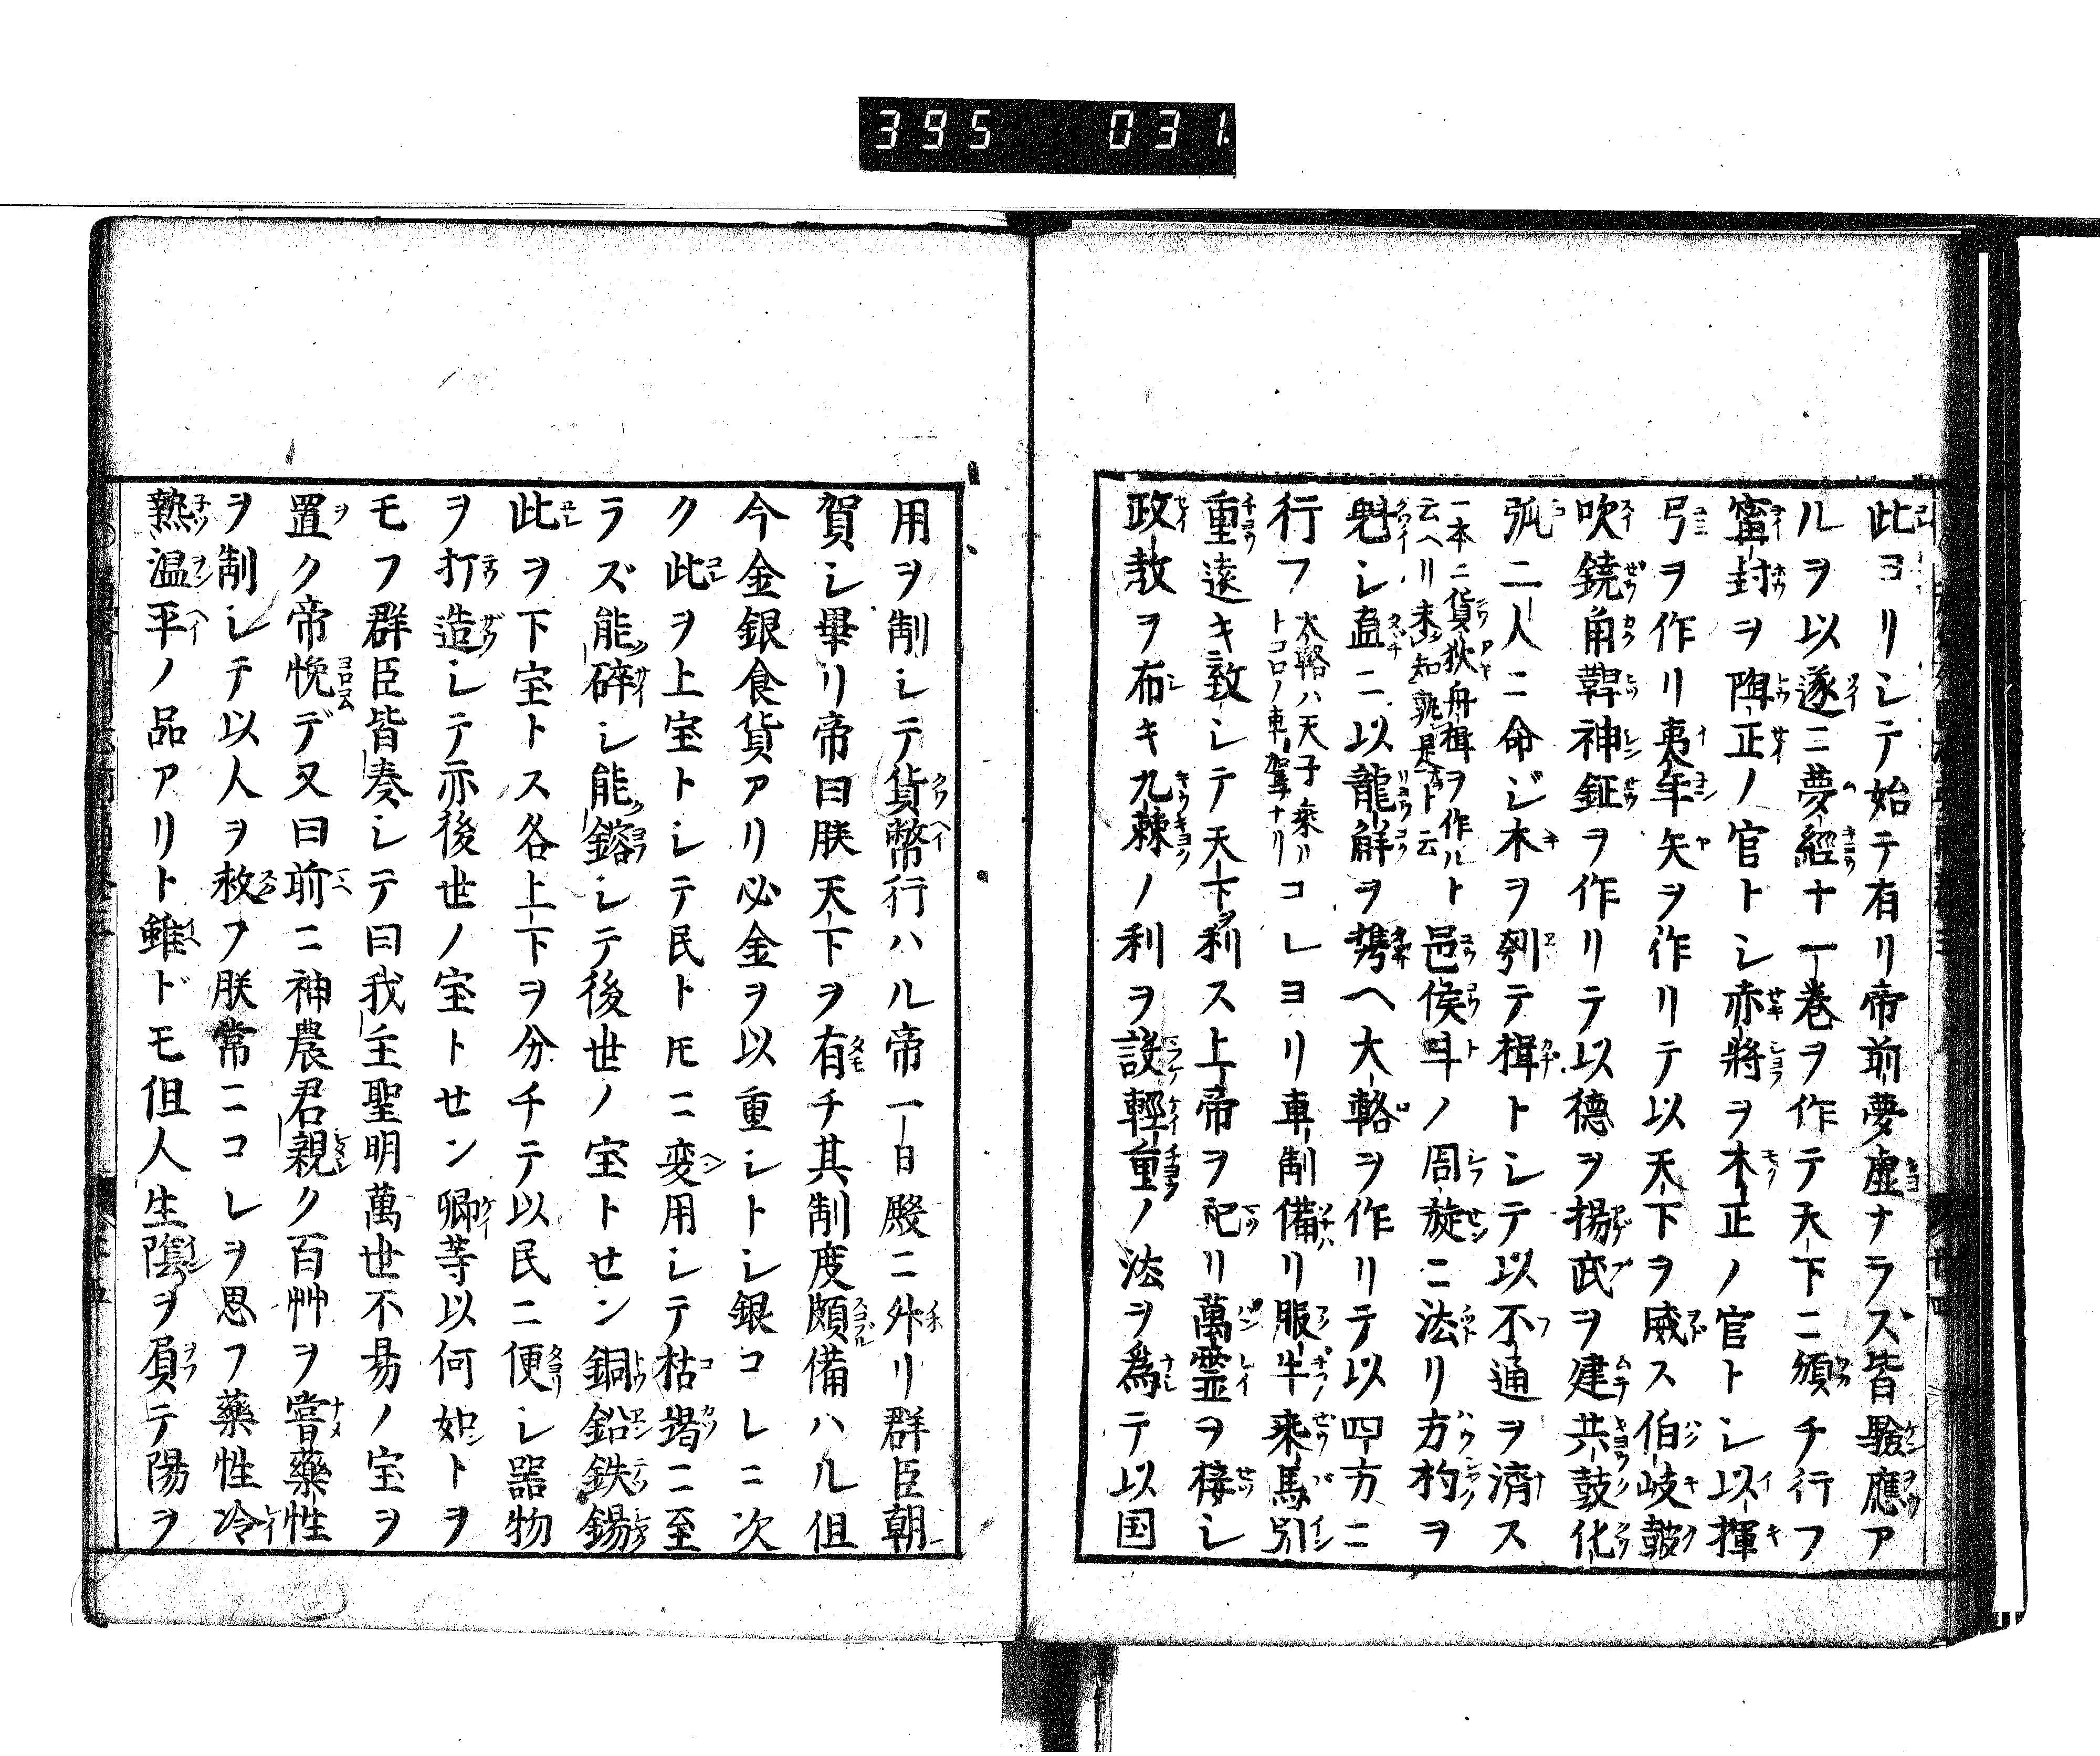 395 031
此ヨリシテ始テ有リ帝前夢虚ナラズ皆驗應ア
ルヲ以遂ニ夢經十一巻ヲ作テ天下ニ頒チ行フ
甯封ヲ陶正ノ官トシ赤將ヲ木正ノ官トシ以揮
弓ヲ作リ夷牟矢ヲ作リテ以天下ヲ威ス伯岐皷
吹鐃角鞞神鉦ヲ作リテ以德ヲ揚武ヲ建共鼓化
弧二人ニ命ジ木ヲ刳テ楫トシテ以不通ヲ濟ス
一本ニ貨狄舟楫ヲ作ルト
云ヘリ未知孰是ト云
邑侯斗ノ周旋ニ法リ方杓ヲ
魁シ𥁃ニ以龍觧ヲ携ヘ大輅ヲ作リテ以四方ニ
行フ
大輅ハ天子乘ル
トコロノ車駕ナリ
コレヨリ車制備リ服牛乘馬引
重遠キ致シテ天下ヲ利ス上帝ヲ祀リ萬霊ヲ棲シ
政敎ヲ布キ九棘ノ利ヲ設輕重ノ法ヲ爲テ以国
用ヲ制シテ貨幣行ハル帝一日殿ニ外リ群臣朝
賀シ畢リ帝曰朕天下ヲ有チ其制度頗備ハル但
今金銀食貨アリ必金ヲ以重シトシ銀コレニ次
ク此ヲ上宝トシテ民トモニ変用シテ枯竭ニ至
ラズ能碎シ能鎔シテ後世ノ宝トセン銅鉛鉄錫
此ヲ下宝トス各上下ヲ分チテ以民ニ便シ器物
ヲ打造シテ亦後世ノ宝トセン卿等以何如トヲ
モフ群臣皆奏シテ曰我主聖明萬世不易ノ宝ヲ
置ク帝悗デ又曰前ニ神農君親ク百艸ヲ嘗藥性
ヲ制シテ以人ヲ救フ朕常ニコレヲ思フ藥性冷
熱温平ノ品アリト雖ドモ但人生陰ヲ負テ陽ヲ